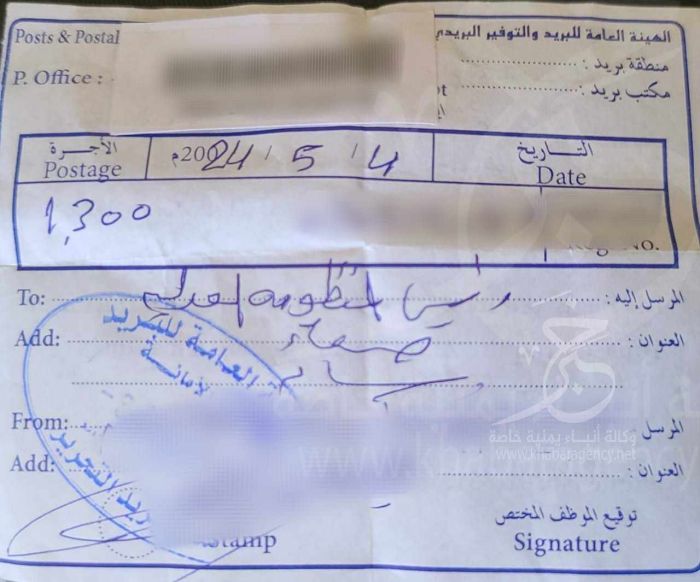 الهيئة العامة للبريد والتوفير البريدي
Posts & Postal
منطقة بريد :
P. Office :
مكتب بريد :
الأجرة
Postage
4 / 5 / 2024م
التاريخ
Date
1,300
No.
To:
رئيس
المرسل إليه :
Add:
صنعاء
العنوان :
العامة للبريد
From:
المرسل
Add:
العنوان :
بريد التحرير
وكالة أنباء يمنية خاصة
www.khabaragency.net
توقيع الموظف المختص
Signature
stamp